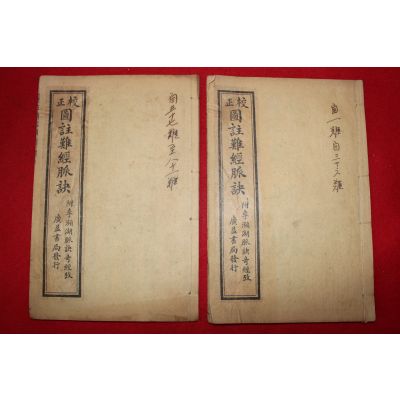 自一難自三十六難
校正
圖註難經脈訣
附李瀕湖脈訣奇經攷
廣益書局發行
自三十七難至八十一難
校正
圖註難經脈訣
附李瀕湖脈訣奇經攷
廣益書局發行